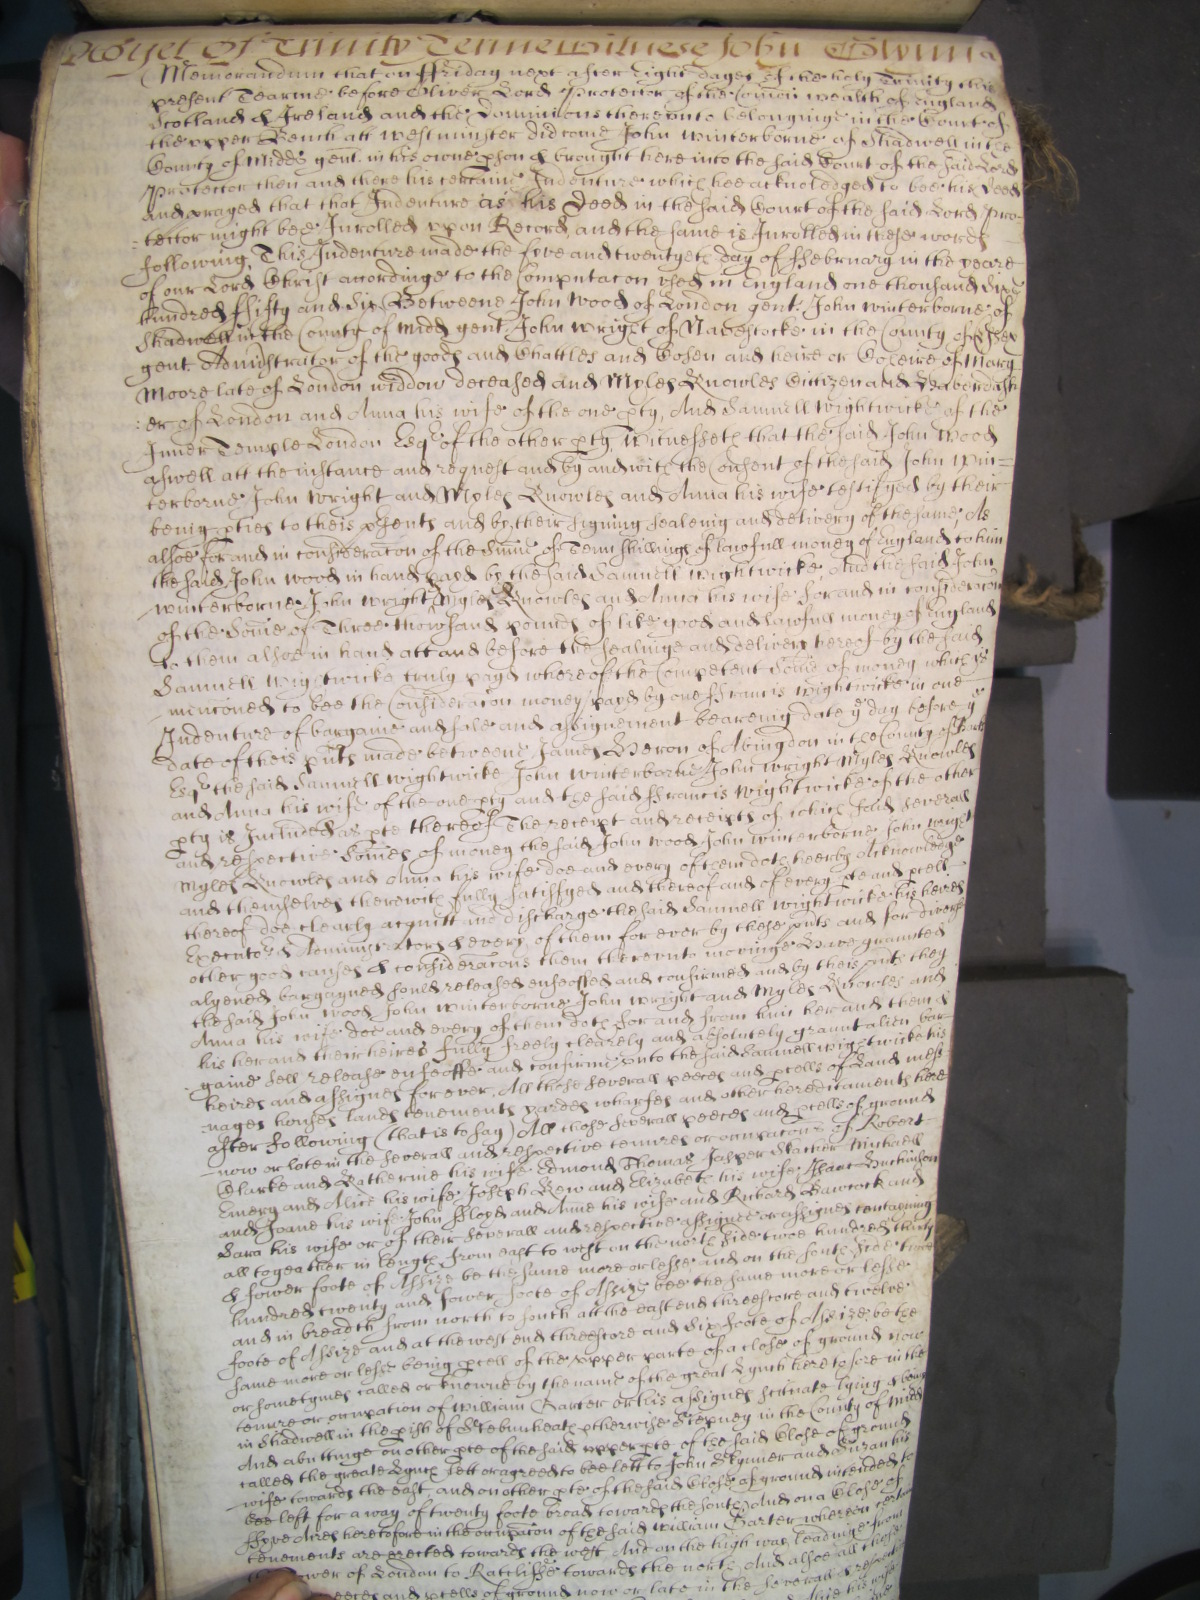 yet of Trinity Terme Witnese John
Memorandum that on ffriday next after Eight dayes of the holy Trinity this
present Tearme before Oliver Lord Protector of the Comon wealth of England
Scotland & Ireland and the Dominions thereunto belonginge in the Court of
the upper Bench att Westminster did come John Winterborne of Shadwell in the
County of Midds gent. in his owne pson & brought here into the said Court of the said Lord
Protector then and there his certaine Indenture which hee acknoledged to bee his Deed
and prayed that that Indenture as his Deed in the said Court of the said Lord Pro-
tector might bee Inrolled upon Record, and the same is Inrolled in these words
following, This Indenture made the five and twentyeth day of ffebruary in the yeare
of our Lord Christ accordinge to the Computacon used in England one thousand Six
hundred ffifty and Six Betweene John Wood of London gent. John Winterborne of
Shadwell in the County of Midd gent. John Wright of Navestocke in the County of Essex
gent. Administrator of the goods and Chattles and Cosen and heire or Coheire of Mary
Moore late of London widdow deceased and Myles Knowles Citizen and Haberdash
er of London and Anna his wife of the one pty, And Samuell Wightwicke of the
Inner Temple London Esqr of the other pty, Witnesseth that the said John Wood
aswell att the instance and request and by and with the Consent of the said John Win=
terborne John Wright and Myles Knowles and Anna his wife testifyed by their
being pties to theis psents and by their signing sealeing and delivery of the same, As
alsoe for and in consideracon of the Sume of Tenn shillings of lawfull money of England to him
the said John Wood in hand payd by the said Samuell Wightwicke, And the said John
Winterborne John Wright Myles Knowles and Anna his wife for and in consideracon
of the Some of Three Thowsand pounds of like good and lawfull money of England
to them alsoe in hand att and before the sealinge and delivery hereof by the said
Samuell Wightwicke truly payd whereof the Competent Some of money which is
menconed to bee the Consideracon money payd by one ffrancis Wightwicke in one
Indenture of bargaine and sale and assignement beareing date ye day before ye
date of theis pnts made betweene James Heron of Abingdon in the County of Berk
Esqr the said Samuell Wightwicke John Winterborne John Wright Myles Knowles
and Anna his wife of the one pty and the said ffrancis Wightwicke of the other
pty is Included as pte thereof The receipt and receipts of which said severall
and respective Somes of money the said John Wood John Winterborne John Wright
Myles Knowles and Anna his wife doe and every of them doth heerby Acknowledge
and themselves therewith fully satisfyed and thereof and of every pte and pcell
thereof doe clearly acquitt and discharge the said Samuell Wightwicke his heires
Executors Administrators & every of them for ever by these pnts and for diverse
other good causes & consideracons them thereunto movinge Have graunted
alyened bargayned sould released enfeoffed and confirmed and by theis pnts they
the said John Wood John Winterborne John Wright and Myles Knowles and
Anna his wife doe and every of them doth for and from him her and them &
his her and their heires fully freely clearely and absolutely graunt alien bar-
gaine sell release enfeoffe and confirme unto the said Samuell Wightwicke his
heires and assignes for ever, All those severall peeces and pcells of Land mess
uages houses lands tenements yardes wharfes and other hereditaments here
after following (that is to say) All those severall peeces and pcells of ground
now or late in the severall and respective tenures or occupacons of Robert
Clarke and Katherine his wife Edmond Thomas Jasper Michaell
Emery and Alice his wife Joseph Row and Elizabeth his wife Isaac Huchinson
and Joane his wife John ffloyd and Anne his wife and Richard Hawcock and
Sara his wife or of their severall and respective assignee or assignes contayning
all togeather in length from east to west on the north side twoe hundred thirty
& fower foote of Assize be the same more or lesse and on the south side twoe
hundred twenty and fower foote of Assize bee the same more or lesse
and in breadth from north to south att the east end threescore and twelve
foote of Assize and at the west end threescore and six foote of Assize be the
same more or lesse being pcell of the upper parte of a close of ground now
or sometymes called or knowne by the name of the great Lynch heretofore in the
tenure or occupation of William Carter or his assignes scituate lying & being
in Shadwell in the pish of Stebunheath otherwise Stepney in the County of Midd
And abutting on other pte of the said upper pte of the said Close of ground
called the greate Lynch lett or agreed to bee lett to John Skynner and Susan his
wife towards the east, and on other pte of the said Close of ground intended to
bee left for a way of twenty foote broad towards the south And on a Close of
ffyve Acres heretofore in the occupacon of the said William Carter whereon certen
tenements are erected towards the west And on the high way leadinge from
the Tower of London to Ratcliffe towards the north, And alsoe all those
peeces and pcells of ground now or late in the severall & respective